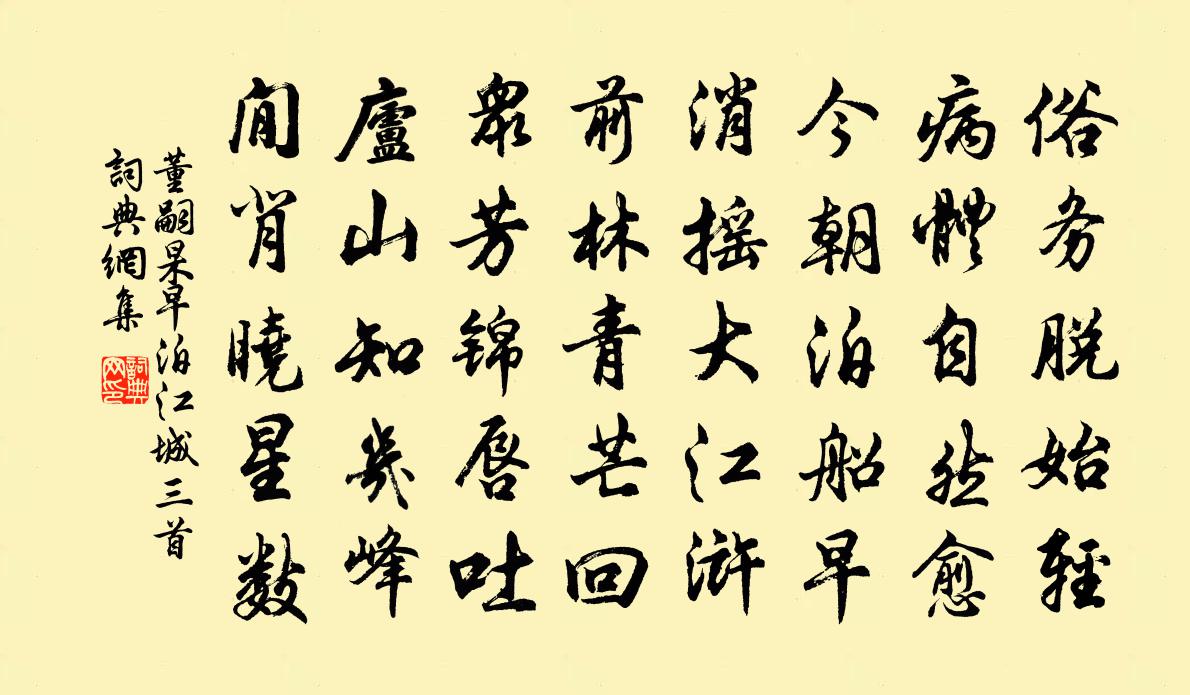 俗务脱始輕
病體自然愈
今朝泊船早
消摇大江滸
前林青芒回
眾芳锦唇吐
廬山知幾峰
閒肖曉星數
董嗣杲早泊江城三首
詞典網集
詞典网印